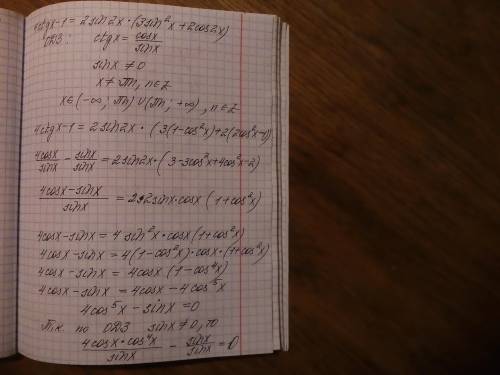 4ctgx-1 = 2sin2x·(3sin²x+2cos2x)
ОДЗ: ctgx = cosx/sinx
sinx ≠ 0
x ≠ πn, n∈Z
x∈(-∞; πn)∪(πn; +∞), n∈Z
4ctgx-1 = 2sin2x·(3(1-cos²x)+2(2cos²x-1))
4cosx/sinx - sinx/sinx = 2sin2x·(3-3cos²x+4cos²x-2)
4cosx-sinx/sinx = 2·2sinx·cosx(1+cos²x)
4cosx-sinx = 4sin²x·cosx(1+cos²x)
4cosx-sinx = 4(1-cos²x)·cosx·(1+cos²x)
4cosx-sinx = 4cosx(1-cos⁴x)
4cosx-sinx = 4cosx-4cos⁵x
4cos⁵x-sinx = 0
Т.к. по ОДЗ sinx≠0, то
4cosx·cos⁴x/sinx - sinx/sinx = 0